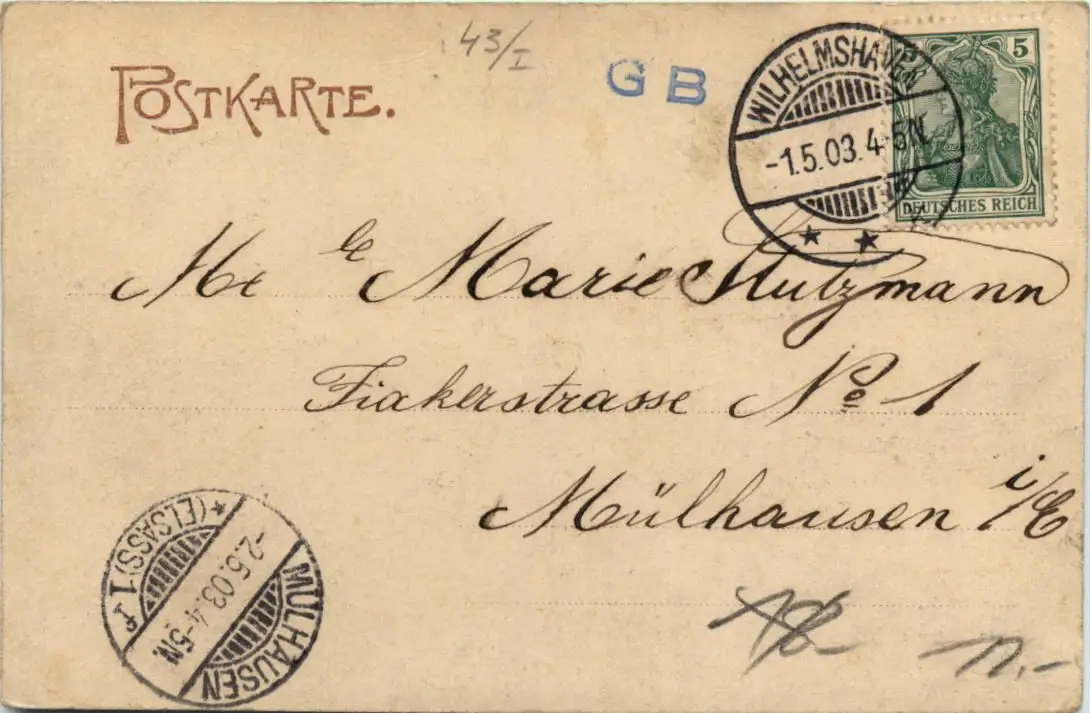 43/I
G B
POSTKARTE.
WILHELMSHAVEN
-1.5.03.4-5N.
5
DEUTSCHES REICH
Mlle Marie Stutzmann
Fiakerstrasse No 1
Mülhausen i/E
MÜLHAUSEN
-2.5.03.4-5N.
*(ELSASS) 1